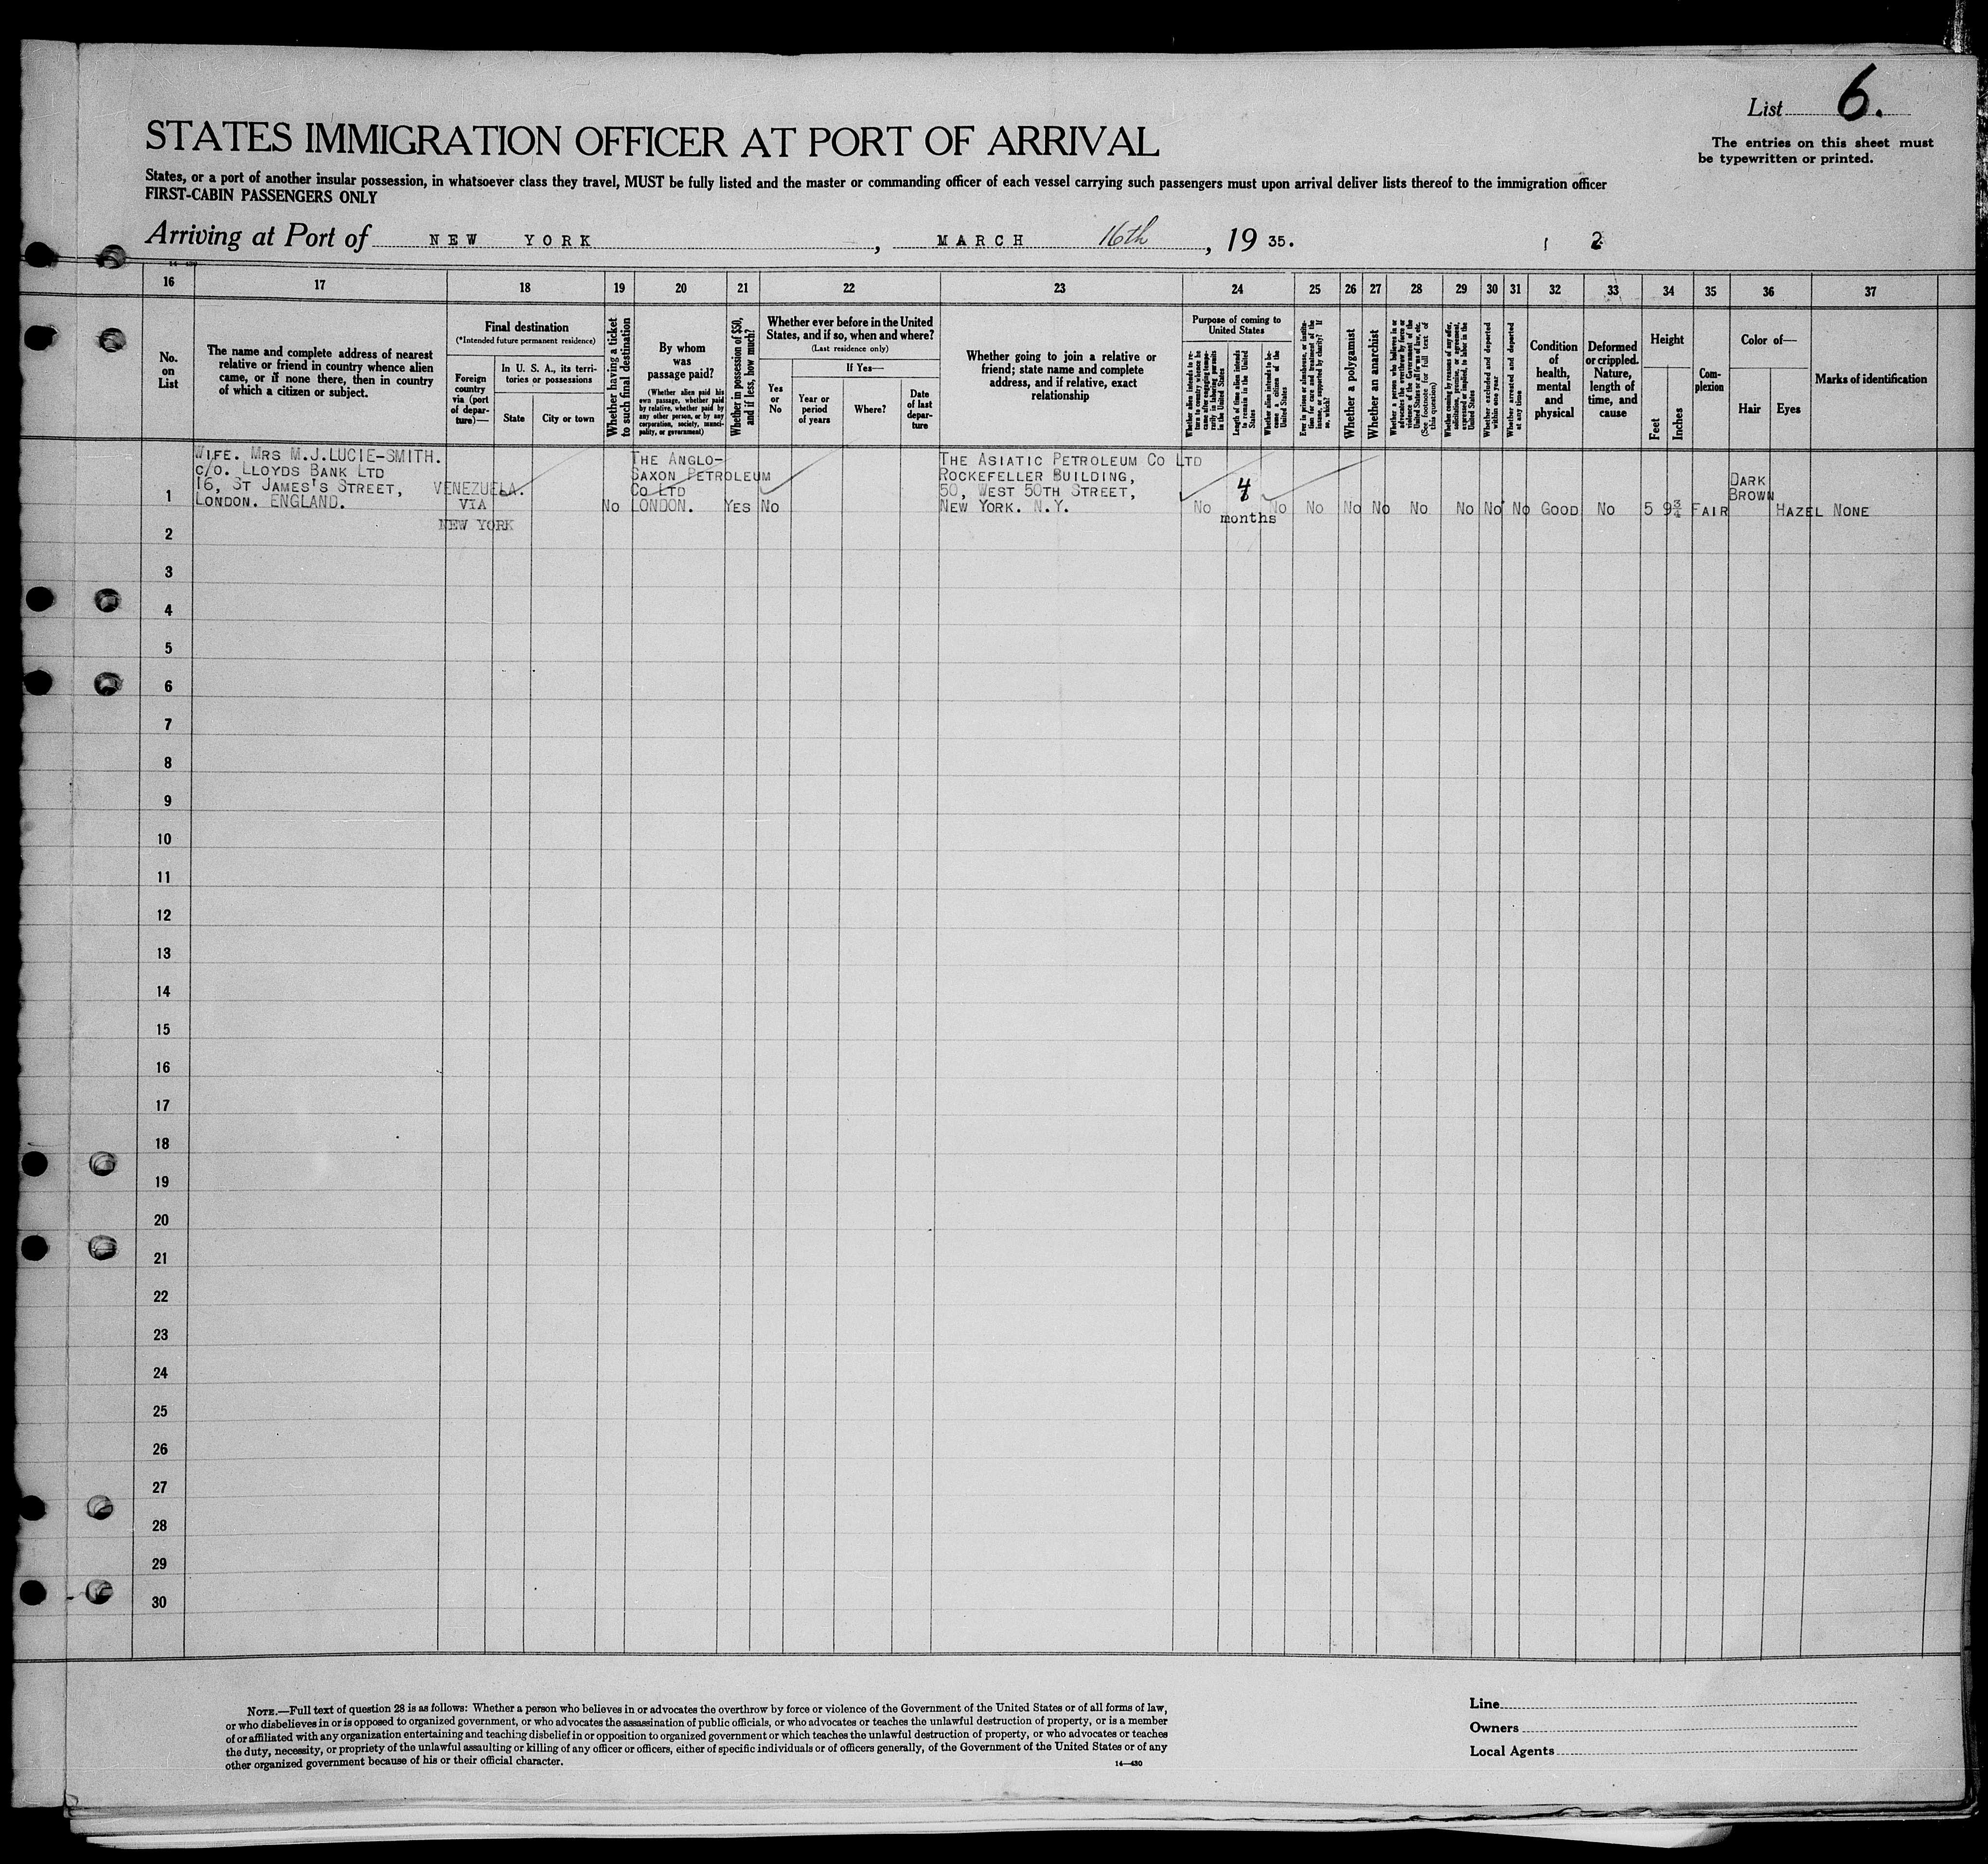 List 6.
The entries on this sheet must
be typewritten or printed.
STATES IMMIGRATION OFFICER AT PORT OF ARRIVAL
States, or a port of another insular possession, in whatsoever class they travel, MUST be fully listed and the master or commanding officer of each vessel carrying such passengers must upon arrival deliver lists thereof to the immigration officer
FIRST-CABIN PASSENGERS ONLY
Arriving at Port of NEW YORK, MARCH 16th, 19 35.
1 2
16 17 18 19 20 21 22 23 24 25 26 27 28 29 30 31 32 33 34 35 36 37
No.
on
List
The name and complete address of nearest
relative or friend in country whence alien
came, or if none there, then in country
of which a citizen or subject.
Final destination
(*Intended future permanent residence)
Foreign
country
via (port
of depar-
ture)—
In U. S. A., its terri-
tories or possessions
State
City or town
Whether having a ticket
to such final destination
By whom
was
passage paid?
(Whether alien paid his
own passage, whether paid
by relative, whether paid by
any other person, or by any
corporation, society, munci-
pality, or government)
Whether in possession of $50,
and if less, how much?
Whether ever before in the United
States, and if so, when and where?
(Last residence only)
Yes
or
No
If Yes—
Year or
period
of years
Where?
Date
of last
depar-
ture
Whether going to join a relative or
friend; state name and complete
address, and if relative, exact
relationship
Purpose of coming to
United States
Whether alien intends to re-
turn to country whence he
came after engaging tempo-
rarily in laboring pursuits
in the United States
Length of time alien intends
to remain in the United
States
Whether alien intends to be-
come a citizen of the
United States
Ever in prison or almshouse, or institu-
tion for care and treatment of the
insane, or supported by charity? If
so, which?
Whether a polygamist
Whether an anarchist
Whether a person who believes in or
advocates the overthrow by force or
violence of the Government of the
United States or all forms of law, etc.
(See footnote for full text of
this question)
Whether coming by reason of any offer,
solicitation, promise, or agreement,
expressed or implied, to labor in the
United States
Whether excluded and deported
within one year
Whether arrested and deported
at any time
Condition
of
health,
mental
and
physical
Deformed
or crippled.
Nature,
length of
time, and
cause
Height
Feet
Inches
Com-
plexion
Color of—
Hair
Eyes
Marks of identification
1
WIFE. MRS M.J.LUCIE-SMITH.
C/O. LLOYDS BANK LTD
16, ST JAMES'S STREET,
LONDON. ENGLAND.
VENEZUELA.
VIA
NEW YORK
NO
THE ANGLO-
SAXON PETROLEUM
CO LTD
LONDON.
YES
NO
THE ASIATIC PETROLEUM CO LTD
ROCKEFELLER BUILDING,
50, WEST 50TH STREET,
NEW YORK. N.Y.
NO
4
months
NO
NO
NO
NO
NO
NO
NO
NO
GOOD
NO
5
9¾
FAIR
DARK
BROWN
HAZEL
NONE
2
3
4
5
6
7
8
9
10
11
12
13
14
15
16
17
18
19
20
21
22
23
24
25
26
27
28
29
30
NOTE.—Full text of question 28 is as follows: Whether a person who believes in or advocates the overthrow by force or violence of the Government of the United States or of all forms of law,
or who disbelieves in or is opposed to organized government, or who advocates the assassination of public officials, or who advocates or teaches the unlawful destruction of property, or is a member
of or affiliated with any organization entertaining and teaching disbelief in or opposition to organized government or which teaches the unlawful destruction of property, or who advocates or teaches
the duty, necessity, or propriety of the unlawful assaulting or killing of any officer or officers, either of specific individuals or of officers generally, of the Government of the United States or of any
other organized government because of his or their official character.
14—430
Line
Owners
Local Agents